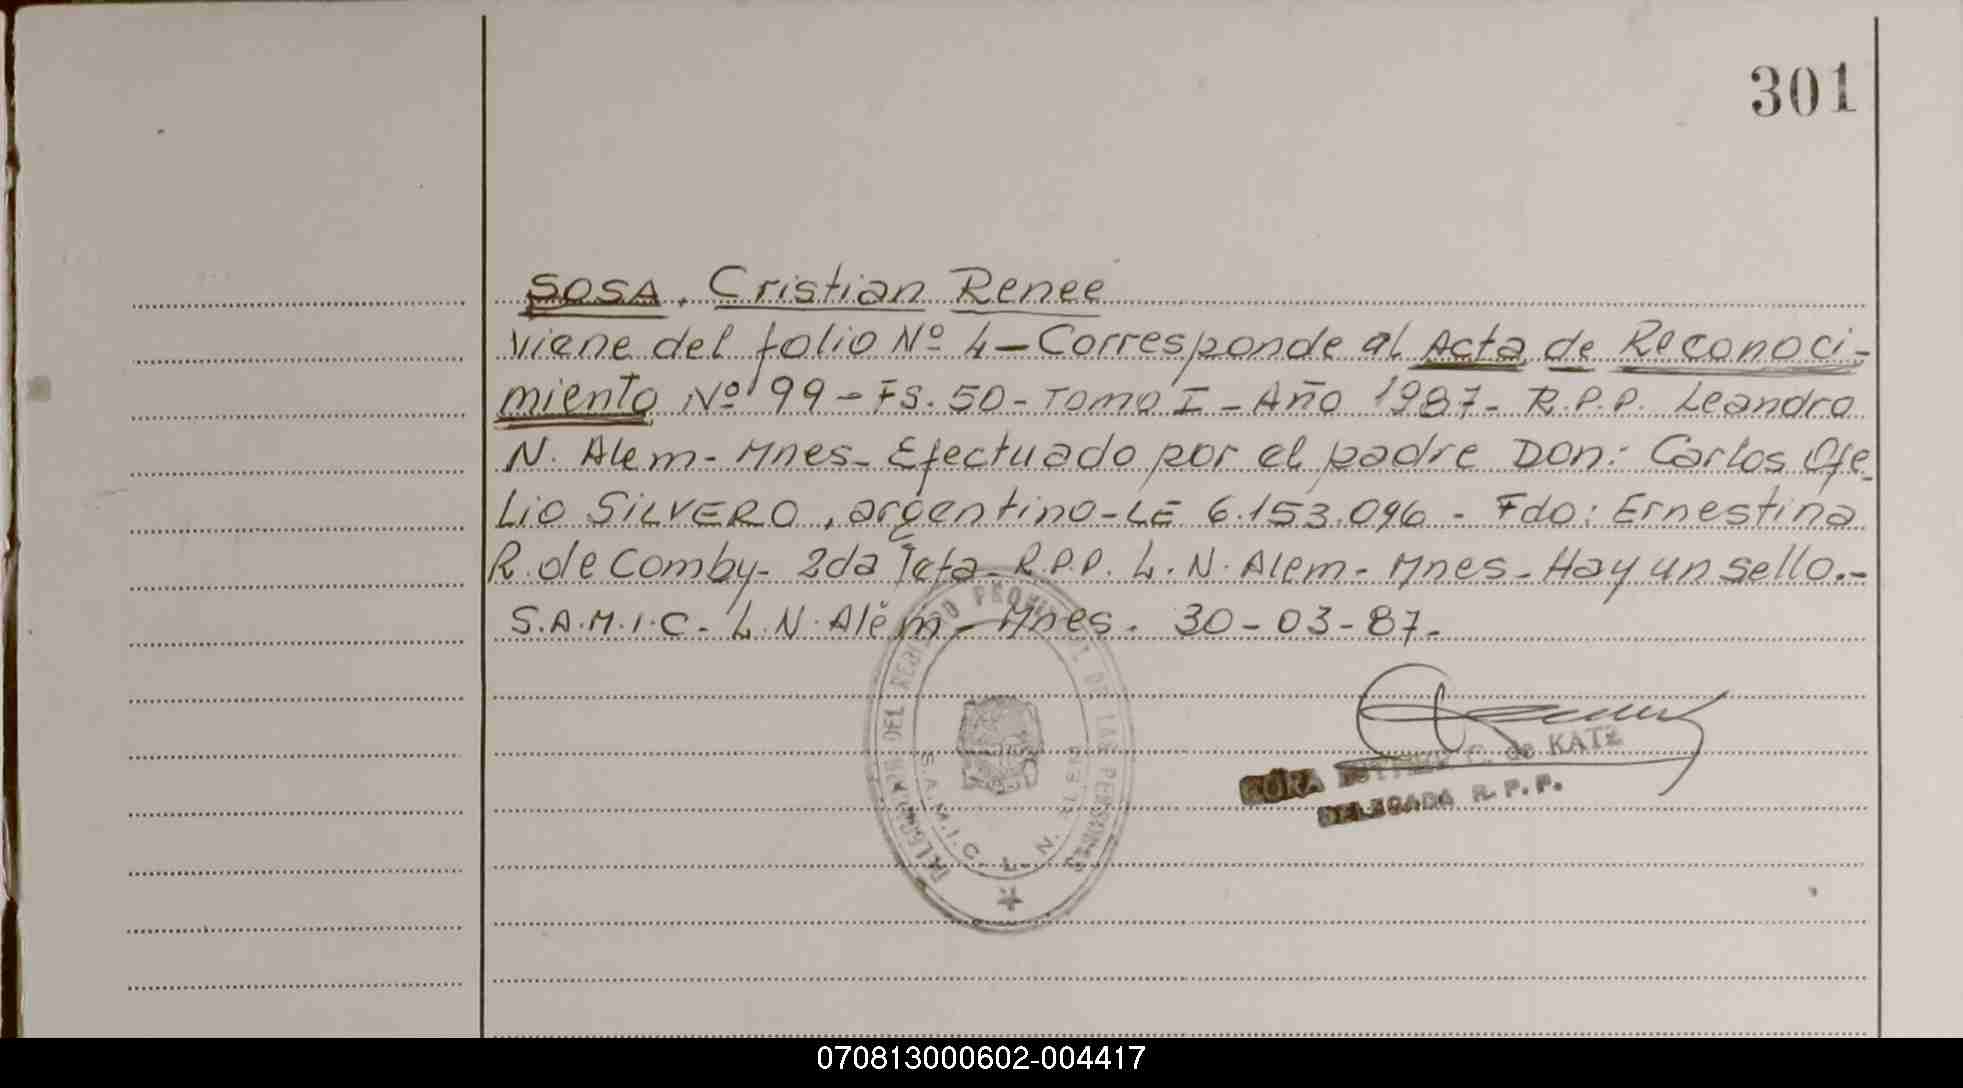 301
SOSA, Cristian Renee
Viene del folio Nº 4 - Corresponde al Acta de Reconoci-
miento Nº 99 - FS. 50 - Tomo I - Año 1987 - R.P.P. Leandro
N. Alem - Mnes - Efectuado por el padre Don: Carlos Ofe-
Lio SILVERO, argentino - LE 6.153.096 - Fdo: Ernestina
R. de Comby - 2da Jefa - R.P.P. L. N. Alem - Mnes - Hay un sello.-
S.A.M.I.C - L. N. Alem - Mnes. 30-03-87.-
DEL REGISTRO PROVINCIAL DE LAS PERSONAS
S.A.M.I.C. L. N. ALEM
C. de KATZ
DELEGADA R.P.P.
070813000602-004417